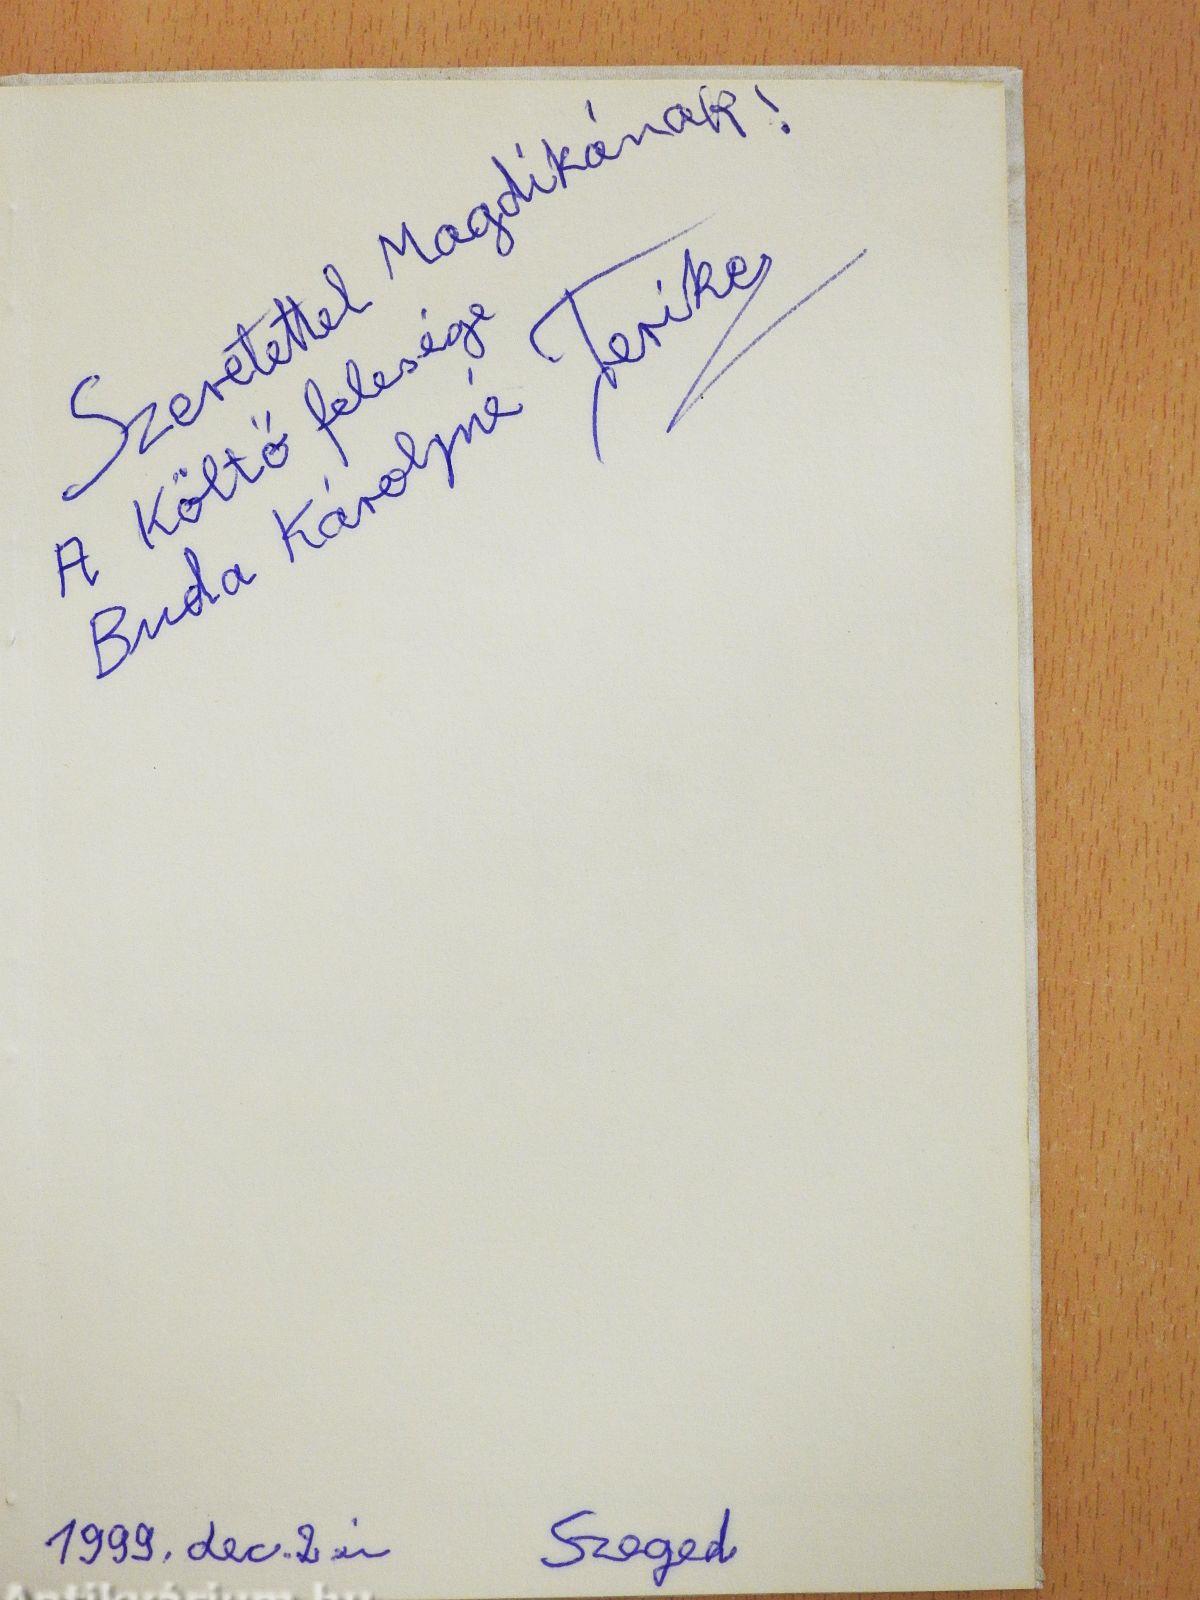 Szeretettel Magdikának!
A Költő felesége
Buda Károlyné Terike
1999. dec. 2.án Szeged
Antikvárium.hu